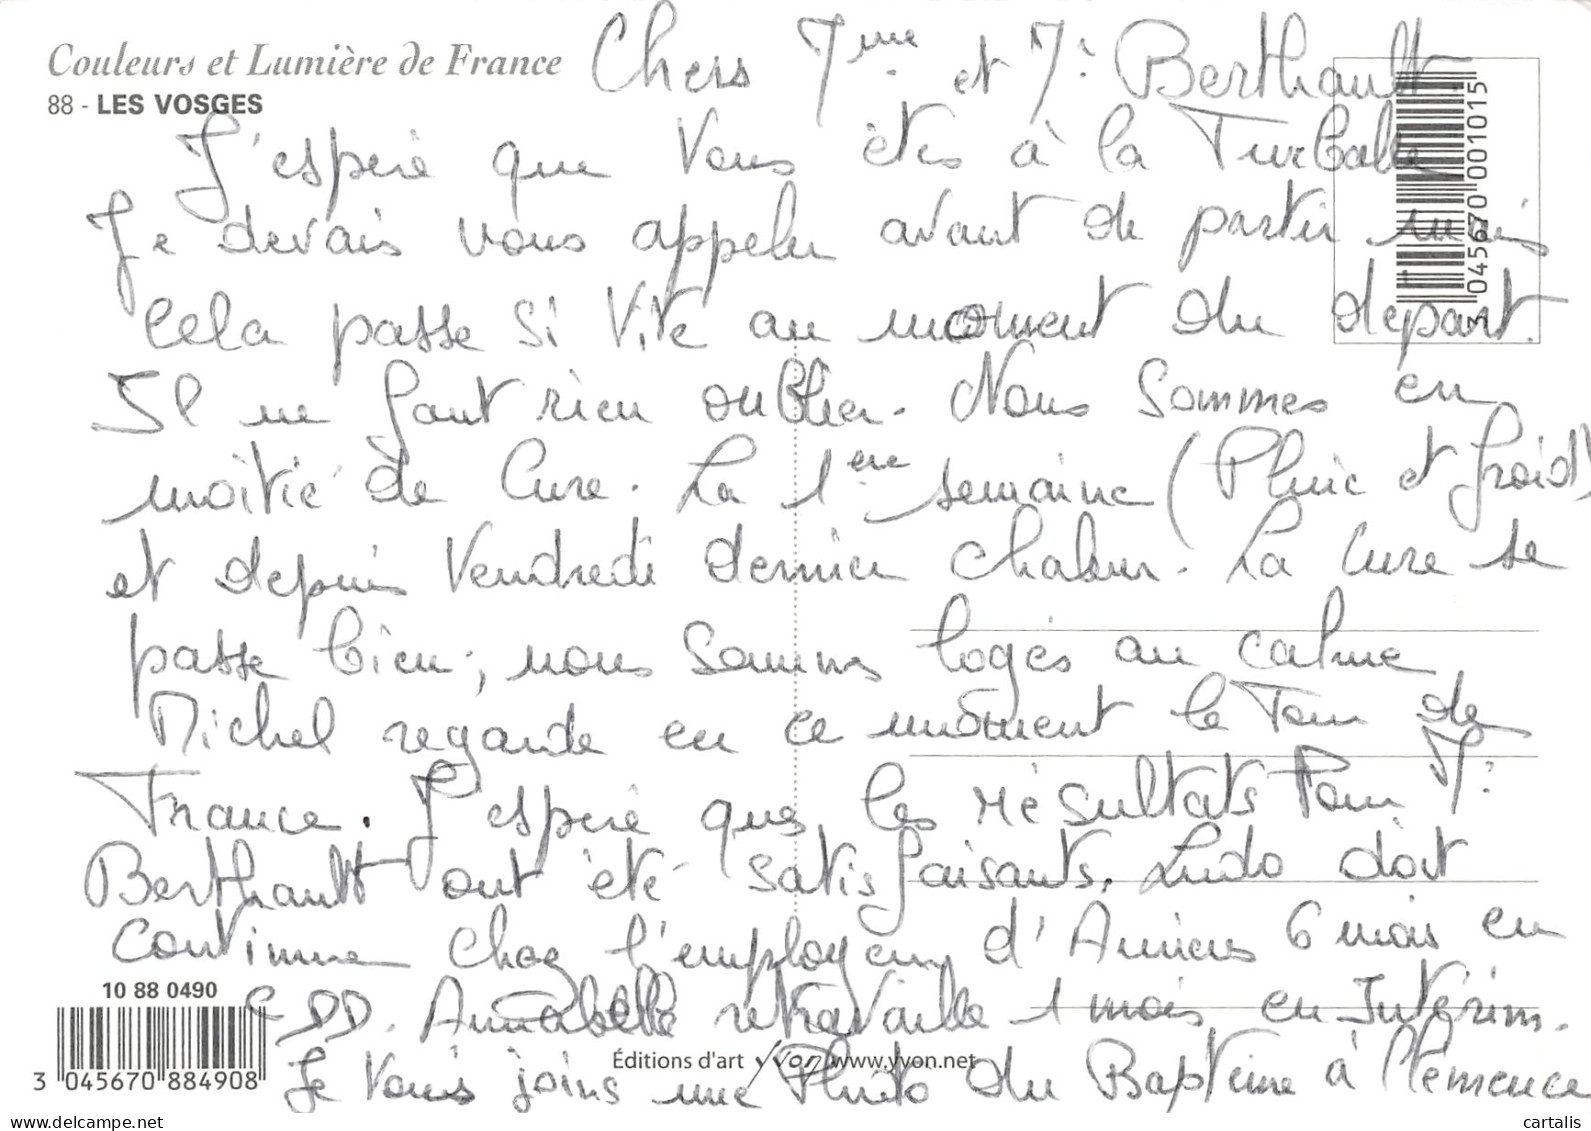 Couleurs et Lumière de France
88 - LES VOSGES
Chers Mme et M. Berthault.
J'espère que Vous êtes à la Turballe
Je devais vous appeler avant de partir mais
Cela passe si vite au moment du départ.
Il ne faut rien oublier. Nous Sommes en
moitié de Cure. La 1ère semaine (Pluie et froid)
et depuis Vendredi dernier chaleur. La Cure se
passe bien, nous Sommes logés au calme
Michel regarde en ce moment le Tour de
France. J'espère que les résultats Pour M.
Berthault ont été satisfaisants. Ludo doit
Continuer chez l'employeur d'Amiens 6 mois en
CDD. Annabelle retravaille 1 mois en Intérim.
Je Vous joins une Photo du Baptême à Clémence
3 045670 001015
10 88 0490
3 045670 884908
Éditions d'art yvon www.yvon.net
delcampe.net
cartalis